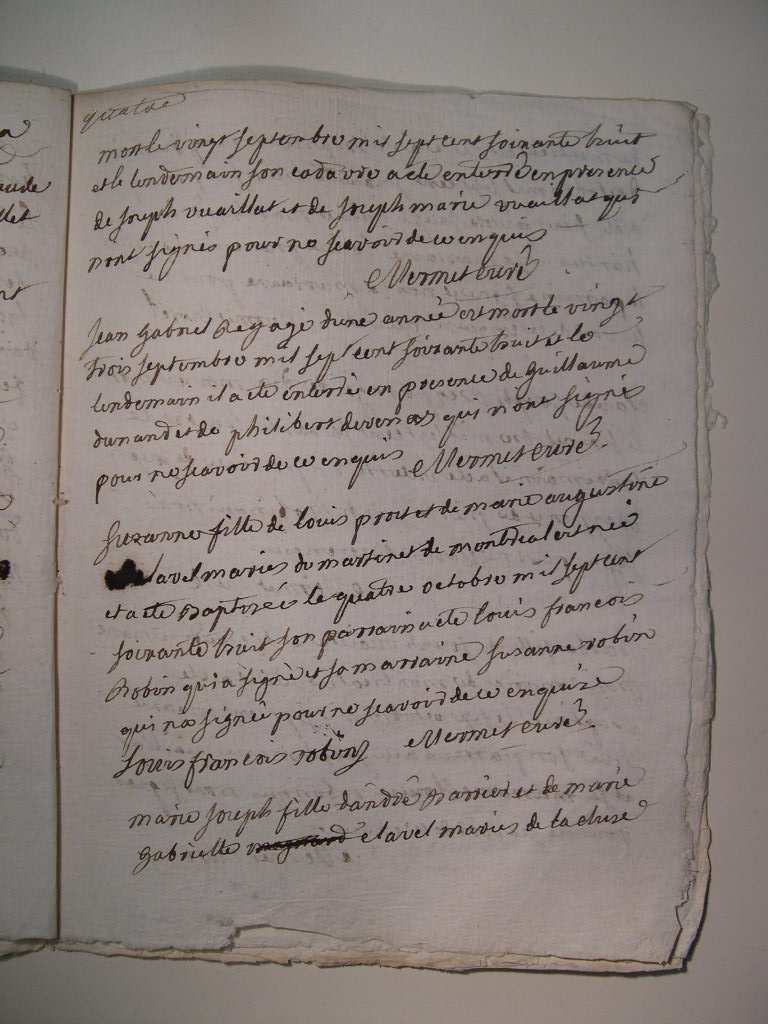 a
aude
llet
nt
quatre
mort le vingt septembre mil sept cent soixante huit
et le lendemain son cadavre a ete enterré en presence
de joseph vuaillat et de joseph marie vuaillat qui
n'ont signés pour ne scavoir de ce enquis
Mermet curé
jean gabriel Regagé d'une année est mort le vingt
trois septembre mil sept cent soixante huit et le
lendemain il a ete enterré en presence de guillaume
dunand et de philibert qui n'ont signés
pour ne scavoir de ce enquis Mermet curé
suzanne fille de louis prost et de marie augustine
clavel mariés du martinet de montreal est née
et a ete baptizée le quatre octobre mil sept cent
soixante huit son parrain a ete louis francois
Robin qui a signé et sa marraine susanne robin
qui na signée pour ne scavoir de ce enquize
Louis francois robin Mermet curé
marie joseph fille d'andré barrier et de marie
gabrielle clavel mariés de la cluse